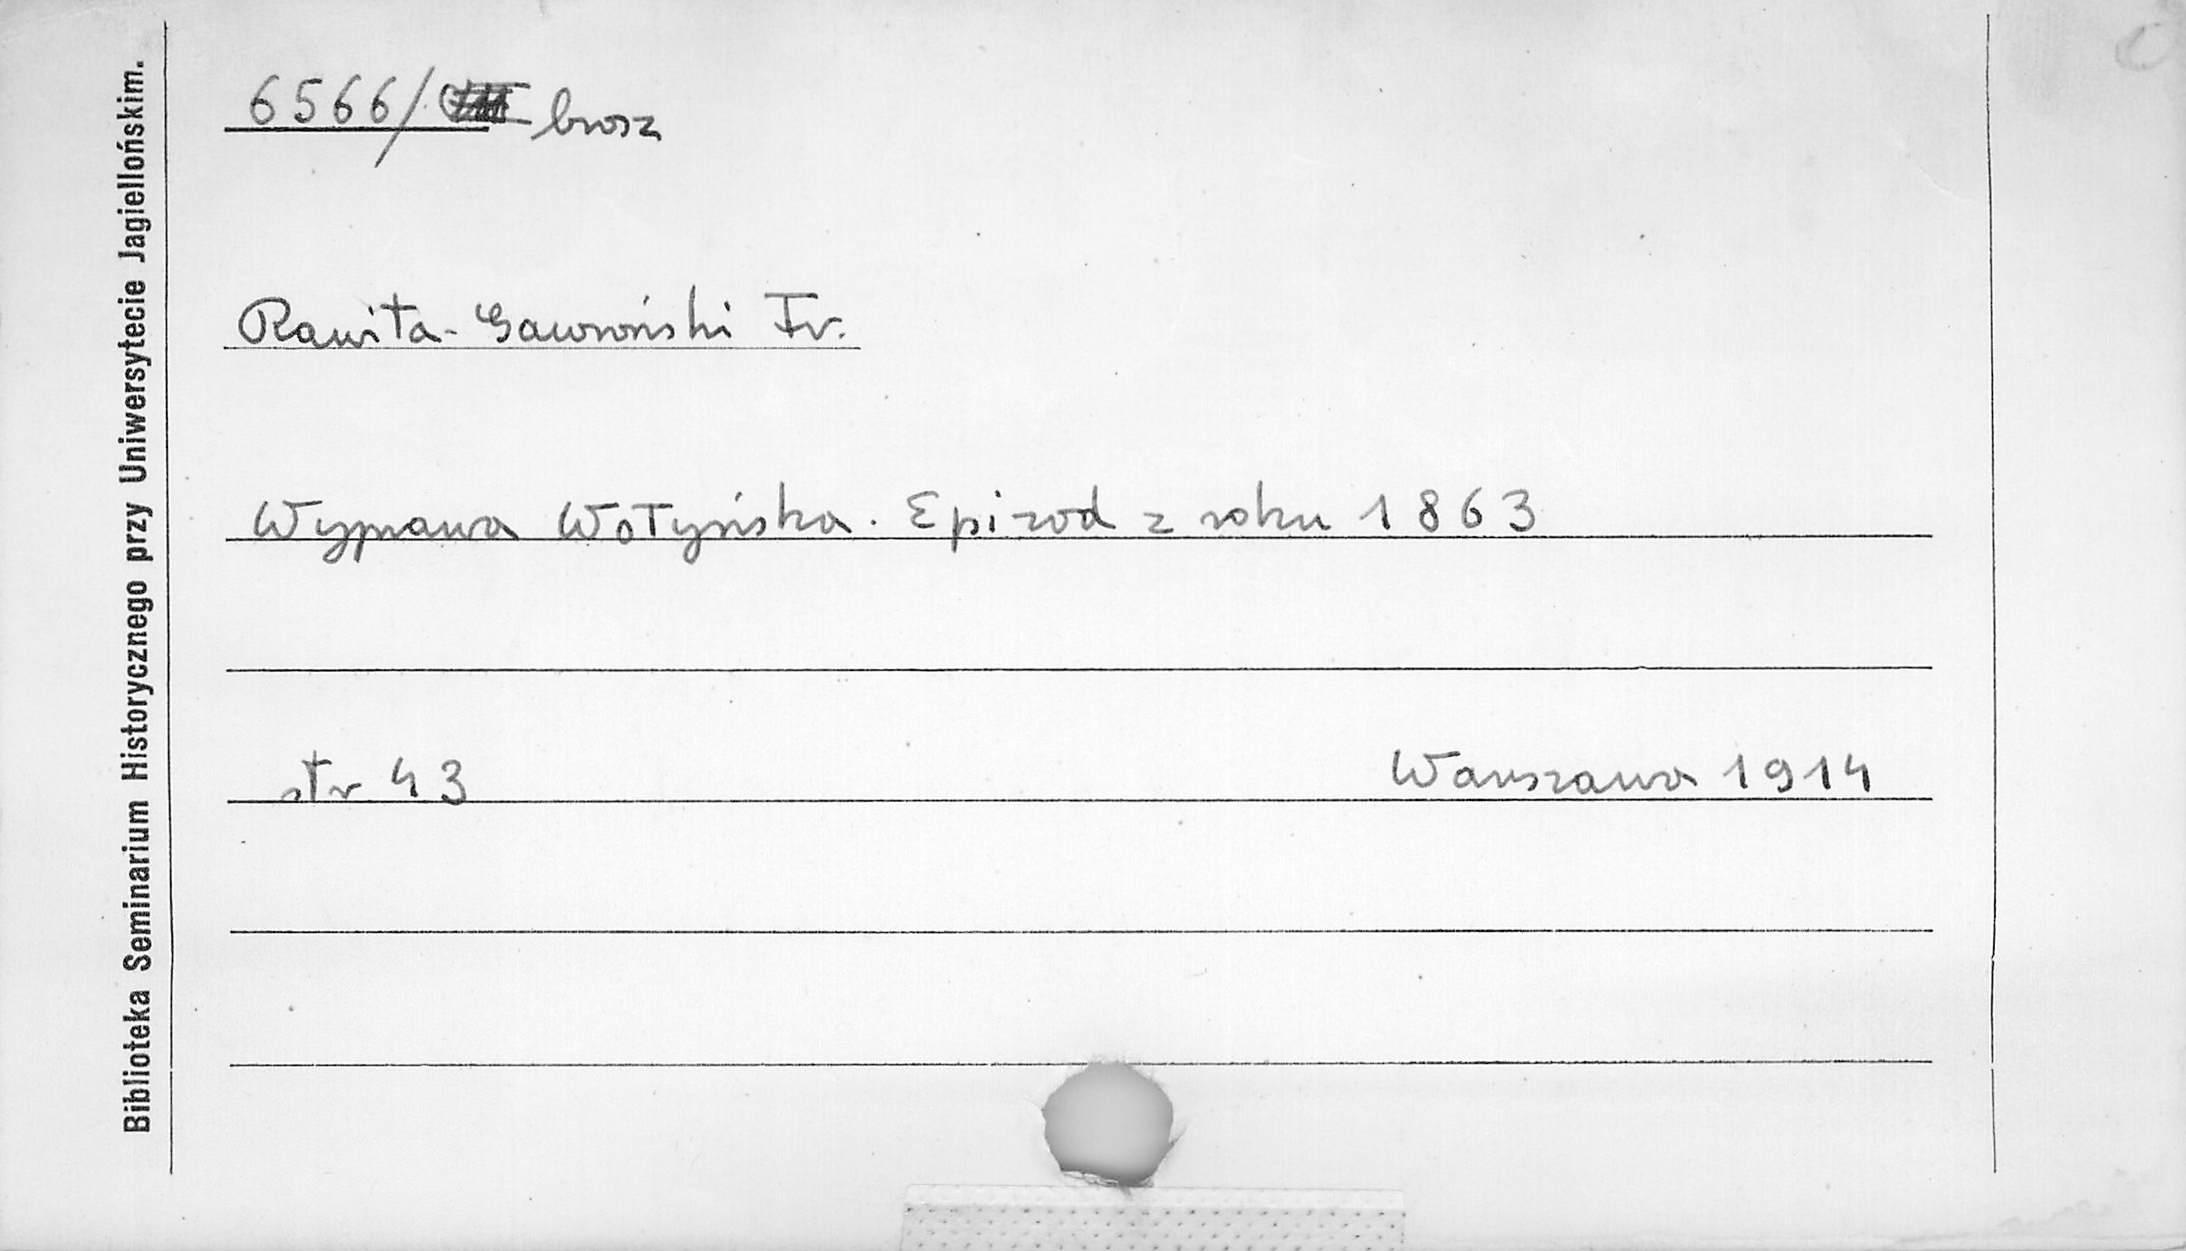 Biblioteka Seminarium Historycznego przy Uniwersytecie Jagiellońskim.
6566/ brosz
Rawita-Gawroński Fr.
Wyprawa Wołyńska. Epizod z roku 1863
str 43 Warszawa 1914